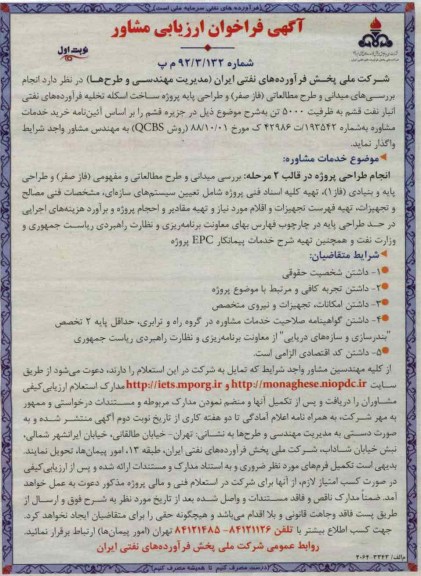 فرآورده های نفتی سرمایه ملی است
آگهی فراخوان ارزیابی مشاور
نوبت اول
شماره ۹۲/۳/۱۳۲ م پ
شرکت ملی پخش فرآورده‌های نفتی ایران (مدیریت مهندسی و طرح‌ها) در نظر دارد انجام
بررسی‌های میدانی و طرح مطالعاتی (فاز صفر) و طراحی پایه پروژه ساخت اسکله تخلیه فرآورده‌های نفتی
انبار نفت قشم به ظرفیت ۵۰۰۰ تن به‌شرح موضوع ذیل در جزیره قشم را بر اساس آئین‌نامه خرید خدمات
مشاوره به‌شماره ۱۹۳۵۴۲/ت ۴۲۹۸۶ ک مورخ ۸۸/۱۰/۰۱ (روش QCBS) به مهندس مشاور واجد شرایط
واگذار نماید.
موضوع خدمات مشاوره:
انجام طراحی پروژه در قالب ۲ مرحله: بررسی میدانی و طرح مطالعاتی و مفهومی (فاز صفر) و طراحی
پایه و بنیادی (فاز۱)، تهیه کلیه اسناد فنی پروژه شامل تعیین سیستم‌های سازه‌ای، مشخصات فنی مصالح
و تجهیزات، تهیه فهرست تجهیزات و اقلام مورد نیاز و تهیه مقادیر و احجام پروژه و برآورد هزینه‌های اجرایی
در حد طراحی پایه در چارچوب فهارس بهای معاونت برنامه‌ریزی و نظارت راهبردی ریاست جمهوری و
وزارت نفت و همچنین تهیه شرح خدمات پیمانکار EPC پروژه
شرایط متقاضیان:
۱- داشتن شخصیت حقوقی
۲- داشتن تجربه کافی و مرتبط با موضوع پروژه
۳- داشتن امکانات، تجهیزات و نیروی متخصص
۴- داشتن گواهینامه صلاحیت خدمات مشاوره در گروه راه و ترابری، حداقل پایه ۲ تخصص
"بندرسازی و سازه‌های دریایی" از معاونت برنامه‌ریزی و نظارت راهبردی ریاست جمهوری
۵- داشتن کد اقتصادی الزامی است.
از کلیه مهندسین مشاور واجد شرایط که تمایل به شرکت در این استعلام را دارند، دعوت می‌شود از طریق
سایت http://monaghese.niopdc.ir و http://iets.mporg.ir مدارک استعلام ارزیابی کیفی
مشاوران را دریافت و پس از تکمیل آنها و منضم نمودن مدارک مربوطه و مستندات درخواستی و ممهور
به مهر شرکت، به همراه نامه اعلام آمادگی تا دو هفته کاری از تاریخ نوبت دوم آگهی منتشر شده و به
صورت دستی به مدیریت مهندسی و طرح‌ها به نشانی: تهران- خیابان طالقانی، خیابان ایرانشهر شمالی،
نبش خیابان شاداب، شرکت ملی پخش فرآورده‌های نفتی ایران، طبقه ۱۳، امور پیمان‌ها، تحویل نمایند.
بدیهی است تکمیل فرم‌های مورد نظر ضروری و به استناد مدارک و مستندات ارائه شده و پس از ارزیابی کیفی
در صورت کسب امتیاز لازم، از آنها برای شرکت در استعلام فنی و مالی پروژه مذکور دعوت به عمل خواهد
آمد. ضمناً مدارک ناقص و فاقد مستندات و واصل شده بعد از تاریخ مورد نظر به شرح فوق و ارسال از
طریق پست فاقد وجاهت قانونی و بلا اقدام می‌باشد و هیچگونه حقی را برای متقاضیان ایجاد نخواهد کرد.
جهت کسب اطلاع بیشتر با تلفن ۸۴۱۲۱۱۲۶- ۸۴۱۲۱۴۸۵ تهران (امور پیمان‌ها) ارتباط برقرار نمائید.
روابط عمومی شرکت ملی پخش فرآورده‌های نفتی ایران
درست مصرف کنیم تا همیشه مصرف کنیم